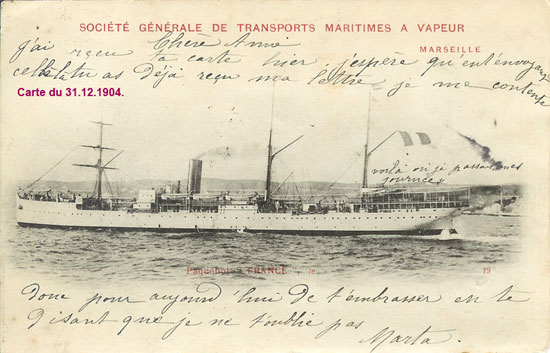 SOCIÉTÉ GÉNÉRALE DE TRANSPORTS MARITIMES A VAPEUR
MARSEILLE
Chère Amie
j'ai reçu ta carte hier j'espère qu'en t'envoyant
celle tu as Déjà reçu ma lettre, je me contente
Carte du 31.12.1904.
voilà où je passais mes
journées
Paquebot FRANCE le 19
Donc pour aujourd'hui de t'embrasser en te
Disant que je ne t'oublie pas
Marta.